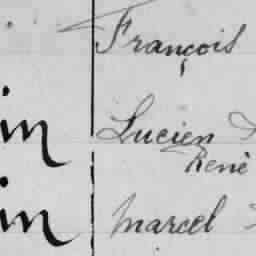 François
in Lucien
René
in Marcel